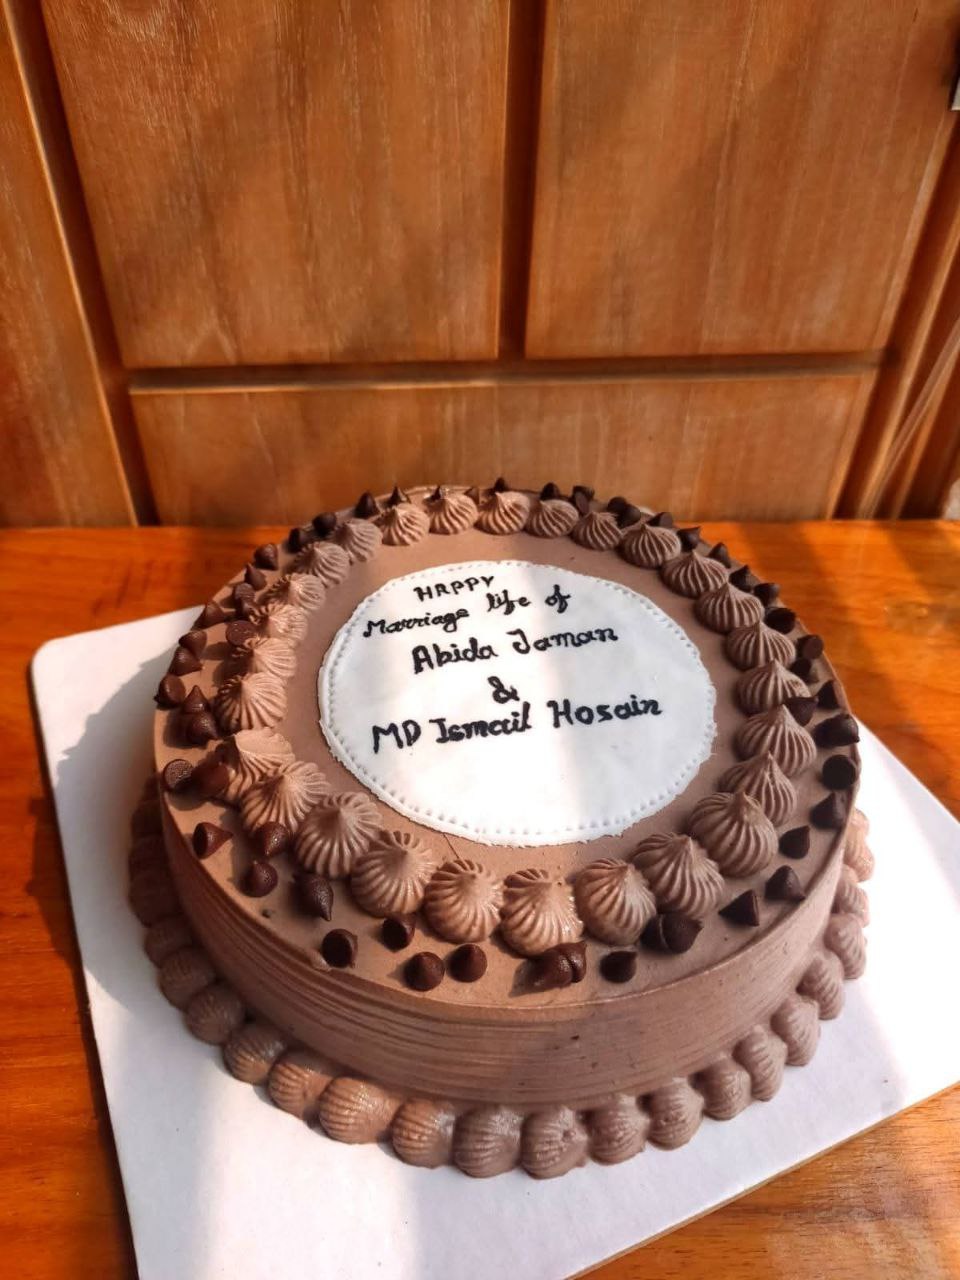 HAPPY
Marriage life of
Abida Jaman
&
MD Ismail Hosain